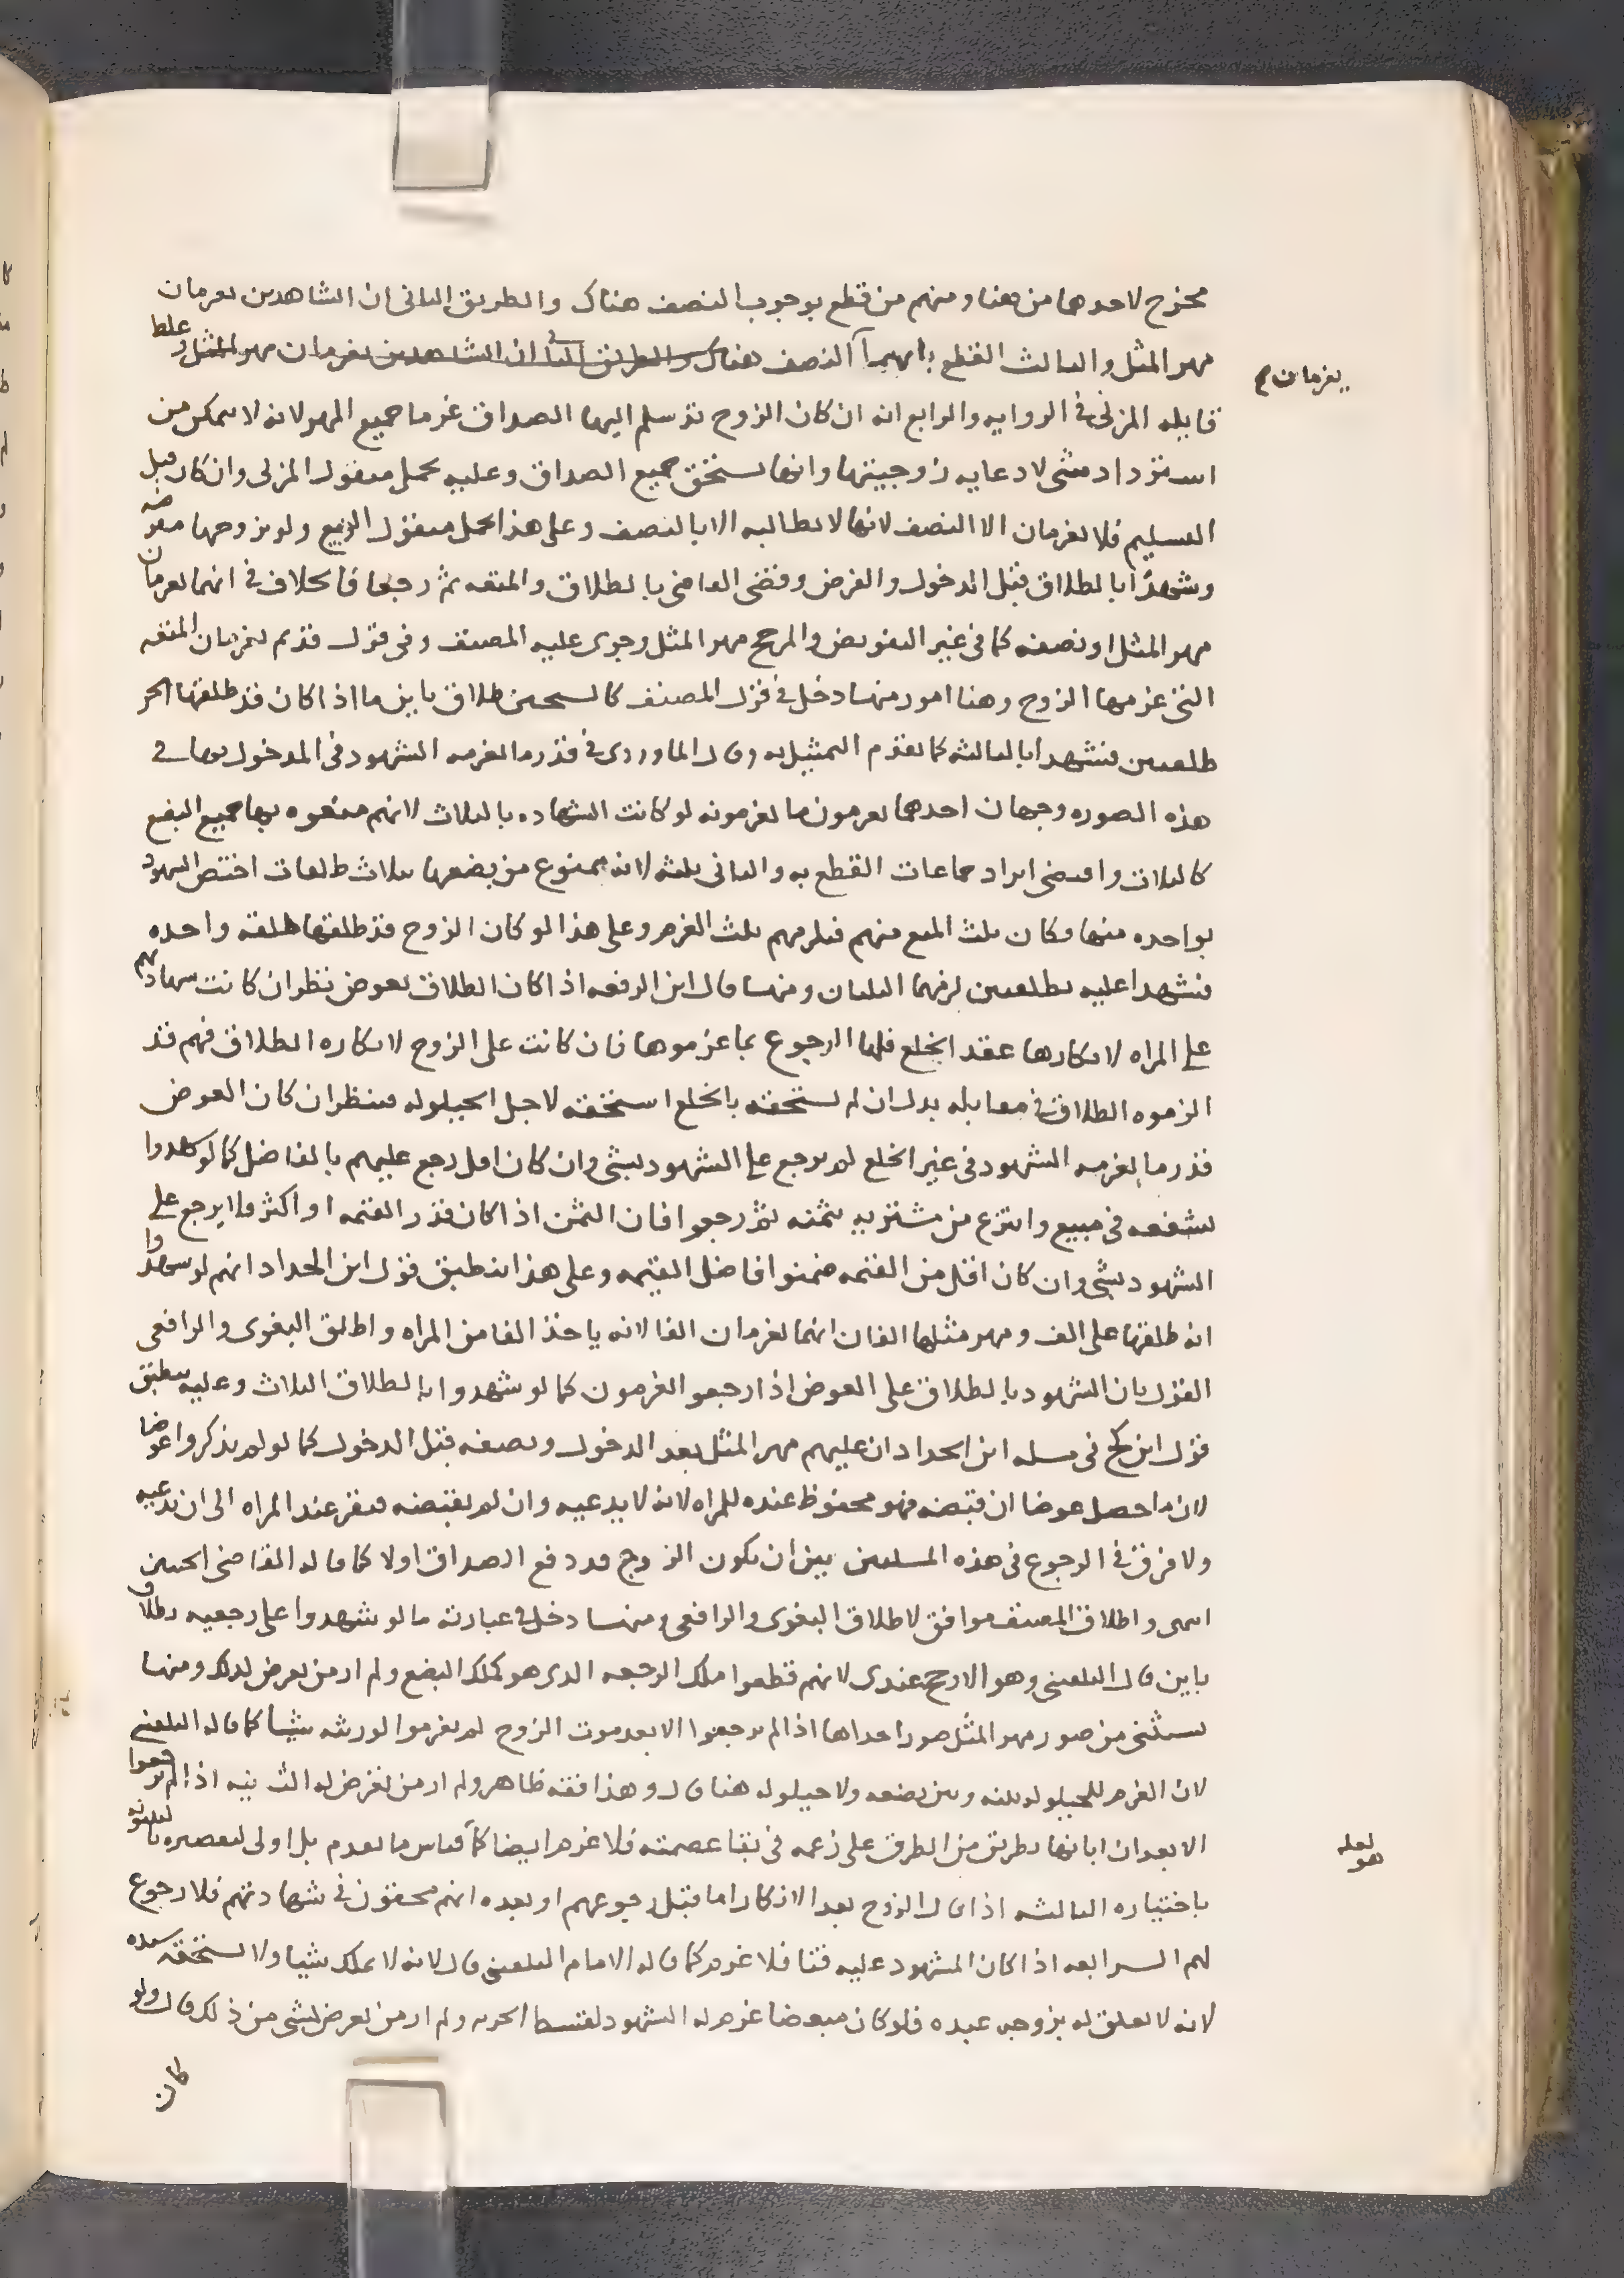 مخرج لاحدهما من هنا ومنهم من قطع بوجوب النصف هناك والطريق الثاني ان الشاهدين يغرمان
مهر المثل والثالث القطع بانهما النصف هناك والطريق الثاني ان الشاهدين يغرمان مهر المثل وغلط
يغرمان
قابله المزني في الرواية والرابع انه ان كان الزوج قد سلم اليها الصداق غرما جميع المهر لانه لا يتمكن من
استرداد شي لادعايه زوجيتها وانها تستحق جميع الصداق وعليه يحمل منقول المزني وان كان قبل
التسليم فلا يغرمان الا النصف لانها لا تطالبه الا بالنصف وعلى هذا يحمل منقول الربيع ولو تزوجها مفوضه
وشهدا بالطلاق قبل الدخول والفرض وقضى القاضي بالطلاق والمتعه ثم رجعا فالخلاف في انهما يغرمان
مهر المثل او نصفه كما في غير التفويض والمرجح مهر المثل وجرى عليه المصنف وفي قول قديم يغرمان المتعه
التي غرمها الزوج وهنا امور منها دخل في قول المصنف طلاق باين ما اذا كان قد طلقها الحر
طلقتين فشهدا بالثالثه كما تقدم التمثيل به وقال الماوردي في قدر ما يغرمه الشهود في المدخول بها في
هذه الصوره وجهان احدهما يغرمون ما يغرمونه لو كانت الشهاده بالثلاث لانهم منعوه بها جميع البضع
كالثلاث واقتضى ايراد جماعات القطع به والثاني ثلثه لانه ممنوع من بضعها بثلاث طلقات اختص الشهود
بواحده منها فكان ثلث المنع منهم فيلزمهم ثلث الغرم وعلى هذا لو كان الزوج قد طلقها طلقه واحده
فشهدا عليه بطلقتين لزمهما الثلثان ومنها قال ابن الرفعه اذا كان الطلاق بعوض نظر ان كانت شهادتهم
على المراه لانكارها عقد الخلع فلها الرجوع بما غرموها فان كانت على الزوج لانكاره الطلاق فهم قد
الزموه الطلاق في مقابله بدل ان لم يستحقه بالخلع استحقه لاجل الحيلوله فينظر ان كان العوض
قدر ما يغرمه الشهود في غير الخلع لم يرجع على الشهود بشي وان كان اقل رجع عليهم بالفاضل كما لو شهدوا
بشفعه في مبيع وانتزع من مشتريه بثمنه ثم رجعوا فان الثمن اذا كان قدر القيمه او اكثر فلا يرجع على
الشهود بشي وان كان اقل من القيمه ضمنوا فاضل القيمه وعلى هذا ينطبق قول ابن الحداد انهم لو شهدوا
انه طلقها على الف ومهر مثلها الفان انهما يغرمان الفا لانه ياخذ الفا من المراه واطلق البغوي والرافعي
القول بان الشهود بالطلاق على العوض اذا رجعوا يغرمون كما لو شهدوا بالطلاق الثلاث وعليه ينطبق
قول ابن كج في مسله ابن الحداد ان عليهم مهر المثل بعد الدخول ونصفه قبل الدخول كما لو لم يذكروا عوضا
لان ما حصل عوضا ان قبضه فهو محفوظ عنده للمراه لانه لا يدعيه وان لم يقبضه فيقر عند المراه الى ان يدعيه
ولا فرق في الرجوع في هذه المسلتين بين ان يكون الزوج قد دفع الصداق اولا كما قاله القاضي الحسين
انتهى واطلاق المصنف موافق لاطلاق البغوي والرافعي ومنها دخل في عبارته ما لو شهدوا على رجعيه بطلاق
باين قال البلقيني وهو الارجح عندي لانهم قطعوا ملك الرجعه الذي هو كملك البضع ولم ار من تعرض لذلك ومنها
يستثنى من صور مهر المثل صور احداها اذا لم يرجعوا الا بعد موت الزوج لم يغرموا لورثه شيا كما قاله البلقيني
لان الغرم للحيلوله بينه وبين بضعه ولا حيلوله هنا قال وهذا فقه ظاهر ولم ار من تعرض له الثانيه اذا لم يرجعوا
الا بعد ان ابانها بطريق من الطرق على زعمه في بقا عصمته فلا غرم ايضا كما قياس ما تقدم بل اولى لتقصيره بالبينونه
لعله
هو
باختياره الثالثه اذا قال الزوج بعد الانكار اما قبل رجوعهم او بعده انهم محقون في شهادتهم فلا رجوع
لهم الرابعه اذا كان المشهود عليه قنا فلا غرم كما قاله الامام البلقيني قال لانه لا يملك شيا ولا يستحقه سيده
لانه لا تعلق له بزوجه عبده فلو كان مبعضا غرم له الشهود بقسط الحريه ولم ار من تعرض لشي من ذلك قال ولو
كان